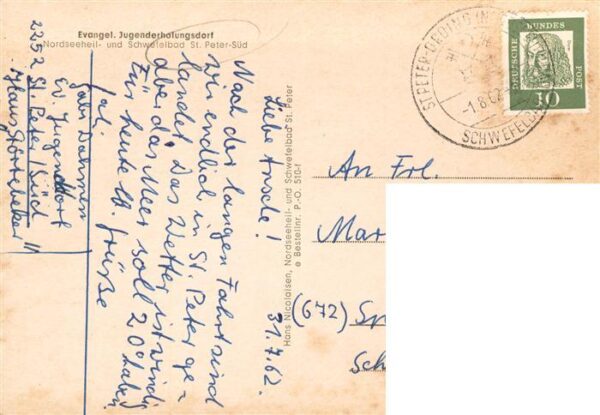 Evangel. Jugenderholungsdorf
Nordseeheil- und Schwefelbad St. Peter-Süd
31.7.62.
Liebe
Nach der langen Fahrt sind
wir endlich in St. Peter ge-
landet. Das Wetter ist windig
aber das Meer soll 20° haben.
Für heute lb. Grüße
Gabi Dahmen
Ev. Jugenddorf
2252 St. Peter / Süd
Haus Störtebeker
Hans Nicolaisen, Nordseeheil- und Schwefelbad St. Peter
Bestellnr. P.-O. 510-f
ST. PETER-ORDING
-1.8.62
SCHWEFELB
DEUTSCHE BUNDESPOST
10
An Frl.
Mar
(672) Sp
Sch